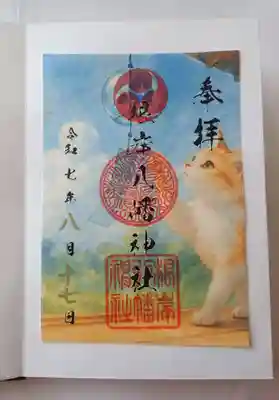 奉拝
根岸八幡神社
根岸
八幡
神社
令和七年八月十七日